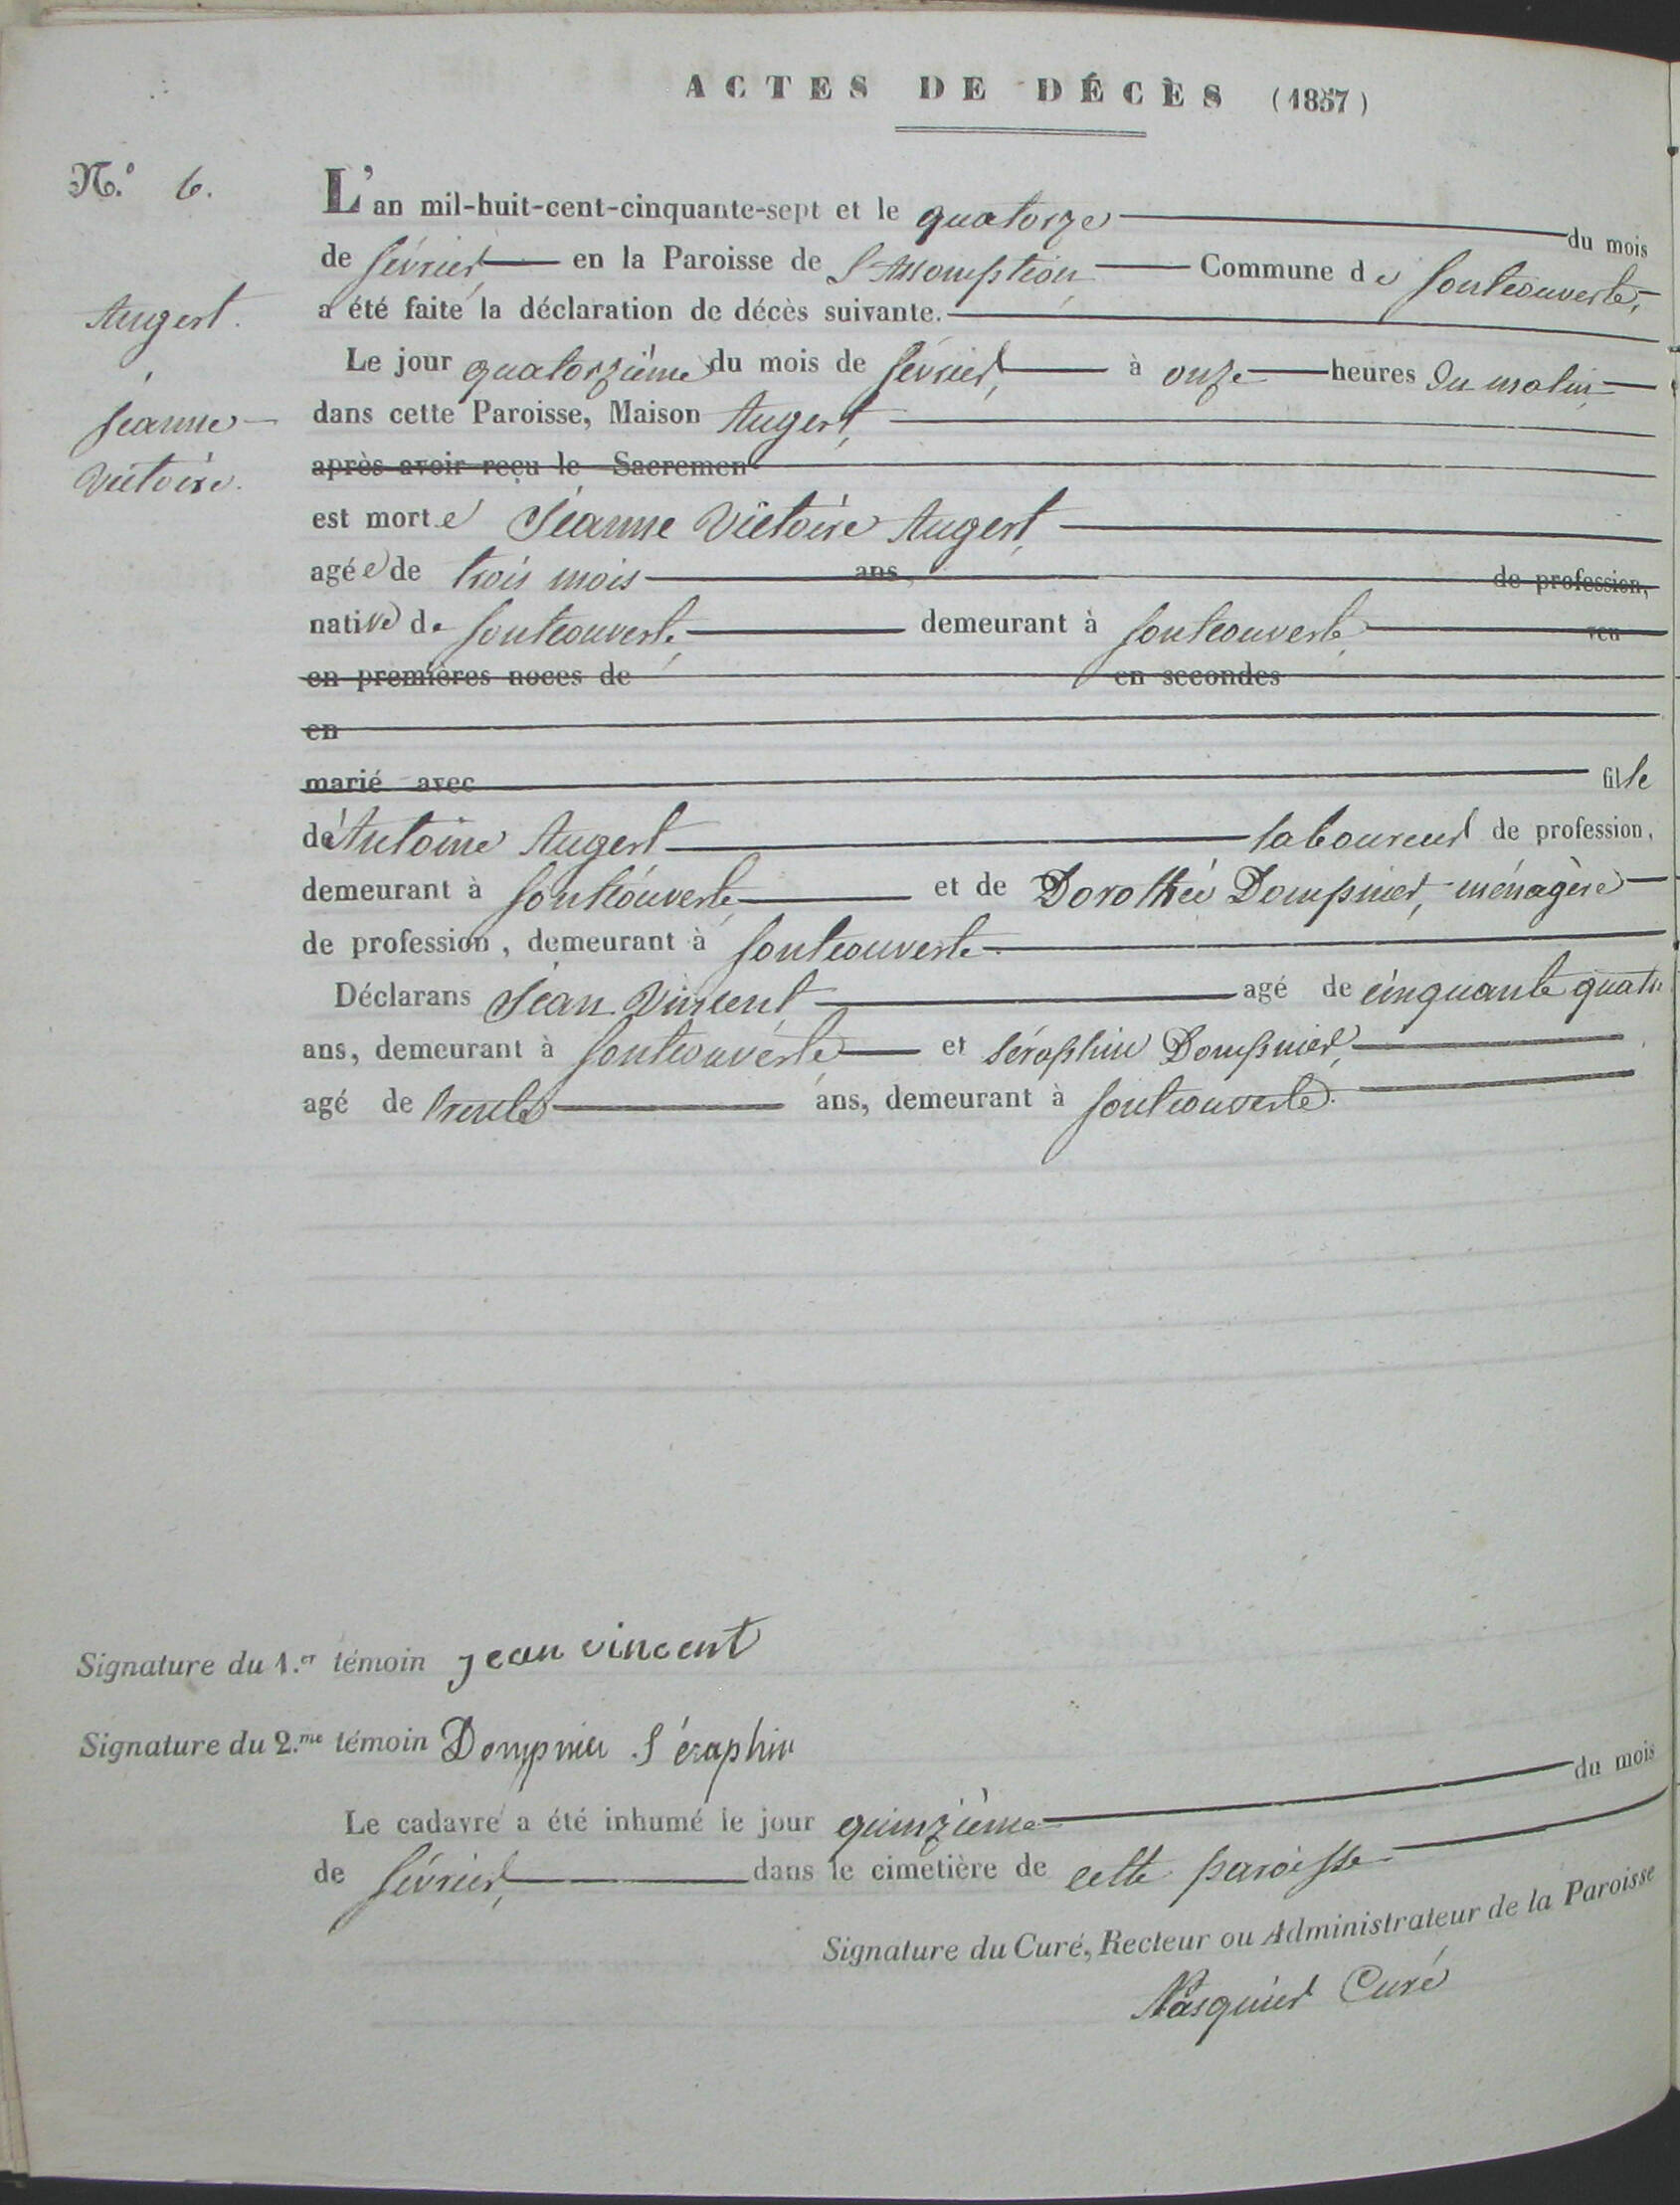 ACTES DE DÉCÈS (1857)
N.º 6.
L'an mil-huit-cent-cinquante-sept et le quatorze du mois
de février en la Paroisse de l'Assomption Commune de fontcouverte,
Augert.
a été faite la déclaration de décès suivante.
Le jour quatorzième du mois de février, à onze heures du matin
Jeanne
dans cette Paroisse, Maison Augert,
Victoire.
après avoir reçu le Sacremen
est morte Jeanne Victoire Augert,
agée de trois mois ans de profession,
native de fontcouverte, demeurant à fontcouverte, veu
en premières noces de en secondes
en
marié avec fille
d'Antoine Augert laboureur de profession,
demeurant à fontcouverte, et de Dorothée Dompnier, ménagère
de profession, demeurant à fontcouverte.
Déclarans Jean Vincent agé de cinquante quatre
ans, demeurant à fontcouverte et Séraphin Dompnier,
agé de trente ans, demeurant à fontcouverte.
Signature du 1.er témoin jean vincent
Signature du 2.me témoin Dompnier Séraphin
Le cadavre a été inhumé le jour quinzième du mois
de février, dans le cimetière de cette paroisse
Signature du Curé, Recteur ou Administrateur de la Paroisse
Curé